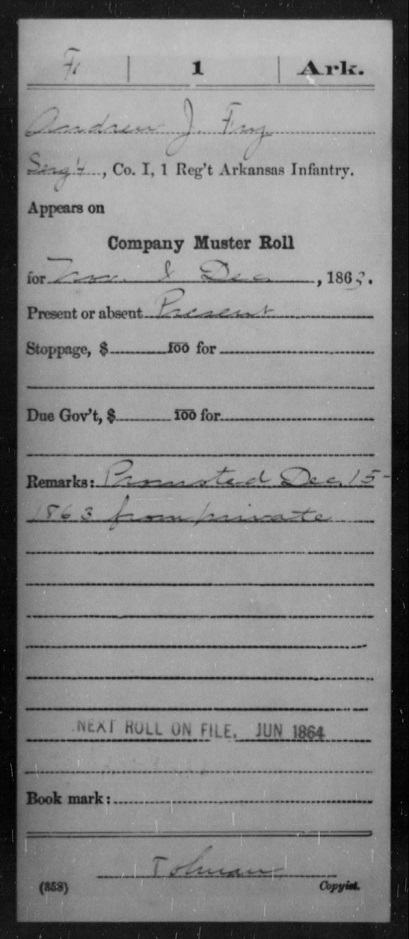 F. | 1 | Ark.
Andrew J. Fry
Serg't, Co. I, 1 Reg't Arkansas Infantry.
Appears on
Company Muster Roll
for Nov. & Dec, 1863.
Present or absent Present
Stoppage, $ 100 for
Due Gov't, $ 100 for
Remarks: Promoted Dec. 15-
1863 from private
NEXT ROLL ON FILE, JUN 1864
Book mark:
Tolman
(358) Copyist.